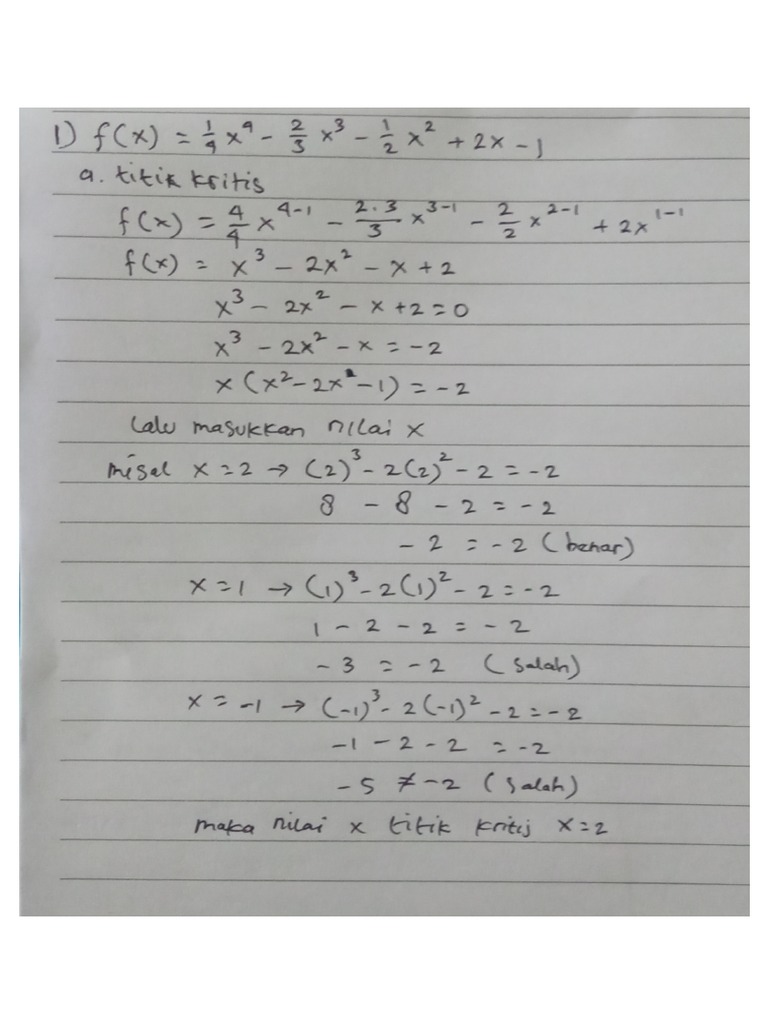 1) f(x) = 1/4 x^4 - 2/3 x^3 - 1/2 x^2 + 2x - 1
a. titik kritis
f(x) = 4/4 x^4-1 - 2.3/3 x^3-1 - 2/2 x^2-1 + 2x^1-1
f(x) = x^3 - 2x^2 - x + 2
x^3 - 2x^2 - x + 2 = 0
x^3 - 2x^2 - x = -2
x (x^2 - 2x - 1) = -2
lalu masukkan nilai x
misal x = 2 → (2)^3 - 2(2)^2 - 2 = -2
8 - 8 - 2 = -2
-2 = -2 (benar)
x = 1 → (1)^3 - 2(1)^2 - 2 = -2
1 - 2 - 2 = -2
-3 = -2 (salah)
x = -1 → (-1)^3 - 2(-1)^2 - 2 = -2
-1 - 2 - 2 = -2
-5 ≠ -2 (salah)
maka nilai x titik kritis x = 2